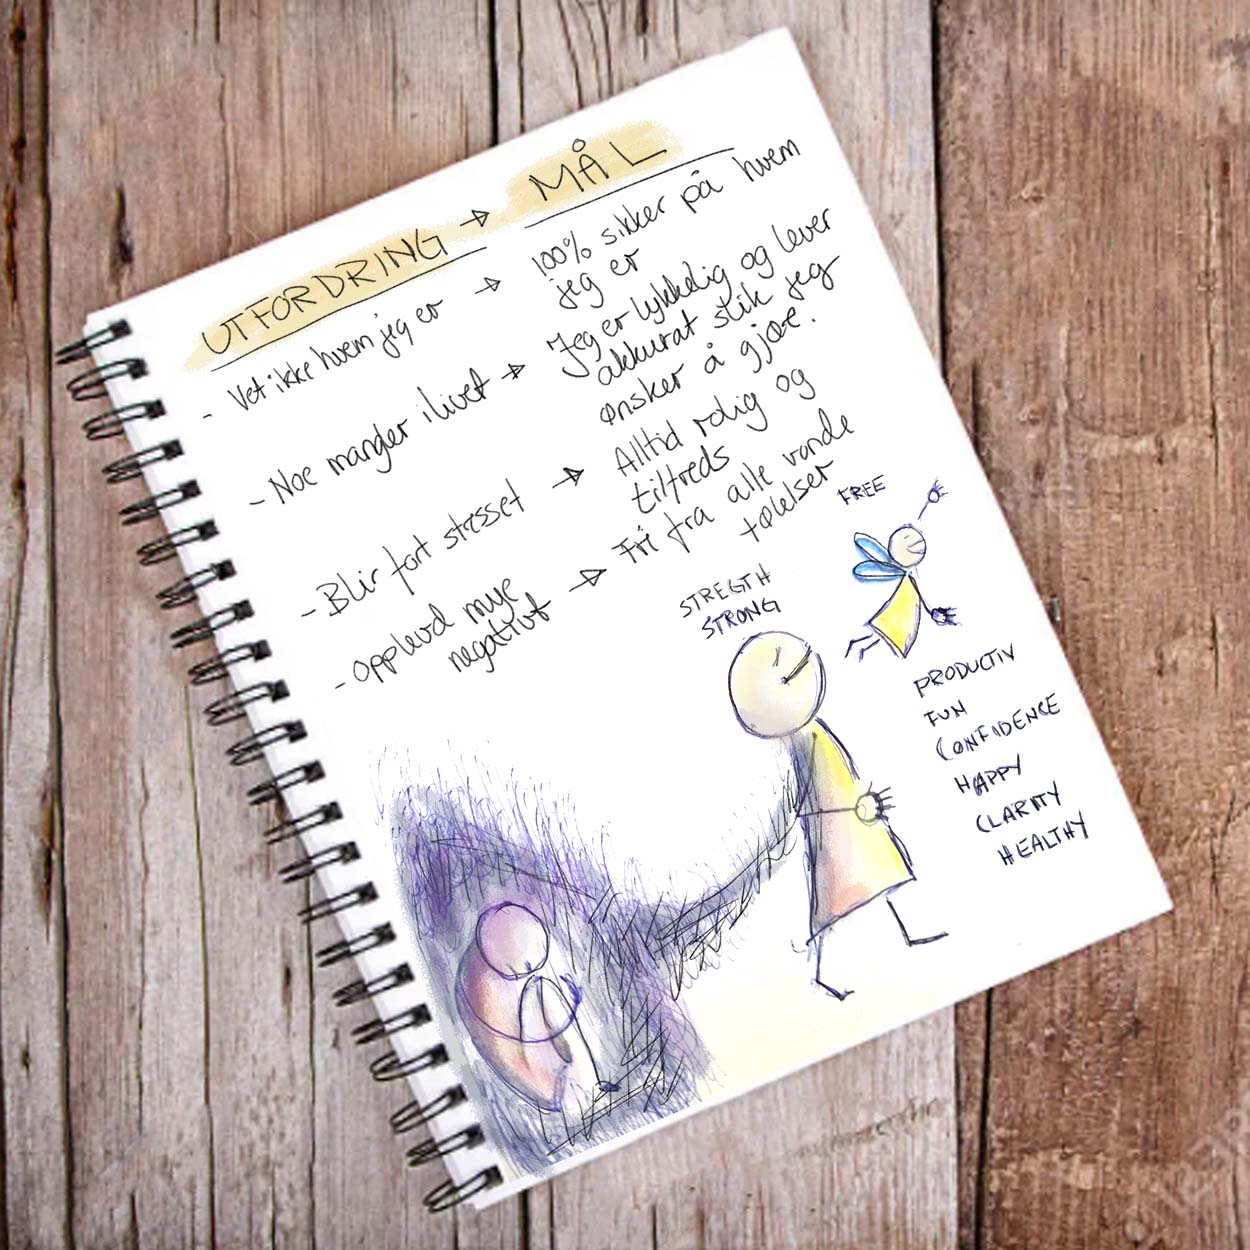 UTFORDRING → MÅL
- Vet ikke hvem jeg er → 100% sikker på hvem
jeg er
- Noe mangler i livet → Jeg er lykkelig og lever
akkurat slik jeg
ønsker å gjøre.
- Blir fort stresset → Alltid rolig og
tilfreds
- Opplevd mye
negativt → Fri fra alle vonde
følelser
FREE
STREGTH
STRONG
PRODUCTIV
FUN
CONFIDENCE
HAPPY
CLARITY
HEALTHY